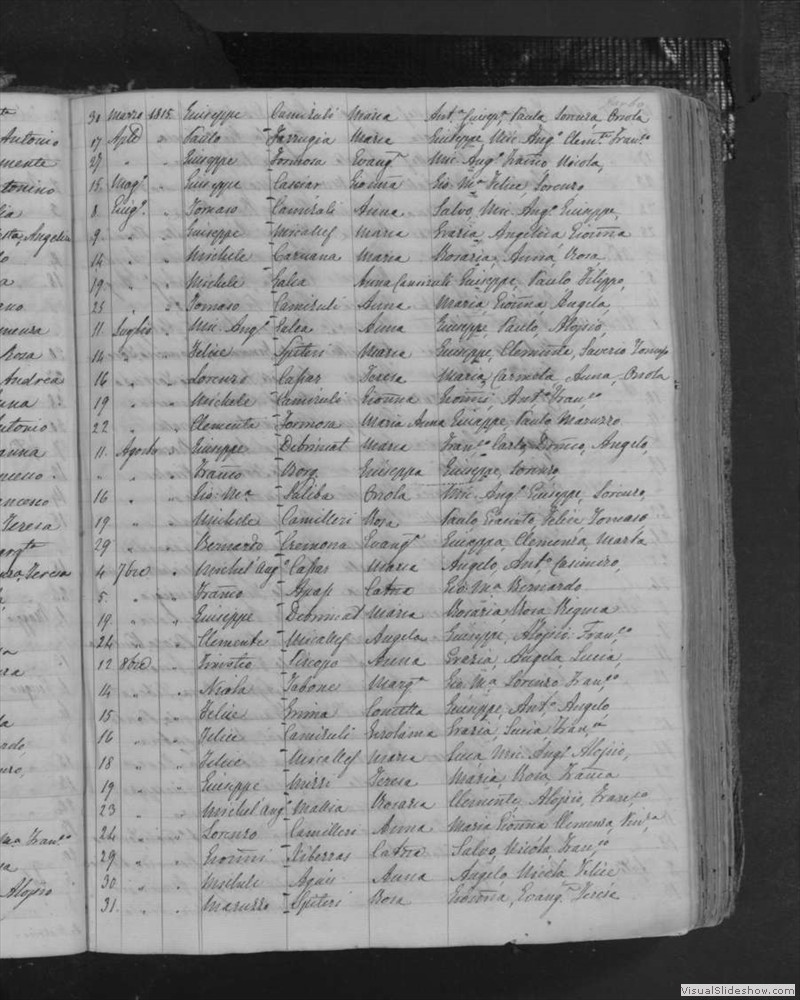 30 Marzo 1815 Giuseppe Camiruli Maria Ant.o Giusep.e Paula Lorenza, Orsola
17 Aple " Paulo Farrugia Maria Giuseppe, Mic. Ang.o Clem.te Fran.co
27 " " Giuseppe Formosa Evang.a Mic. Ang.o Franco Nicola,
15 Mag.o " Giuseppe Cassar Gioñña Gio. M.a Felice, Lorenzo
8 Giug.o " Tomaso Camiruli Anna Salvo, Mic. Ang.o Giuseppe,
9 " " Giuseppe Micallef Maria Grazia, Angelica Gioñña
14 " " Michele Caruana Maria Rosaria, Anna, Rosa
19 " " Michele Galea Anna Camiruli Giuseppe, Paulo Filippo,
23 " " Tomaso Camiruli Anna Maria, Gioñña, Angela,
11 Luglio " Mic. Ang.o Galea Anna Giuseppe, Paulo, Alojsio,
14 " " Felice Spiteri Maria Giuseppe, Clemente, Saverio Tomaso
16 " " Lorenzo Cassar Teresa Maria, Carmela, Anna, Orsola
19 " " Michele Camiruli Gioñña Gioñni Ant.o Fran.co
22 " " Clemente Formosa Maria Anna Giuseppe, Paulo Maruzzo,
11 Agosto " Giuseppe Debrincat Maria Fran.co Carlo, Angelo,
" " " Franco Borg Giuseppa Giuseppe, Lorenzo
16 " " Gio. M.a Saliba Orsola Mic. Ang.o Giuseppe, Lorenzo,
19 " " Michele Camilleri Rosa Paulo, Felice, Tomaso
29 " " Bernardo Cremona Evang.a Giuseppa, Clemenza, Marta
4 7bre " Michel'Ang.o Cassar Maria Angelo, Ant.o Casimiro,
5 " " Franco Agius Catña Gio. M.a Bernardo
19 " " Giuseppe Debrincat Maria Rosaria Rosa
24 " " Clemente Micallef Angela Giuseppe, Alojsio Fran.co
12 8bre " Piscopo Anna Grazia, Angela Lucia,
14 " " Nicola Tabone Marg.a Gio. M.a Lorenzo, Fran.co
15 " " Felice Grima Concetta Giuseppe, Ant.o Angelo
16 " " Felice Camiruli Girolama Grazia, Lucia Fran.ca
18 " " Felice Micallef Maria Luca Mic. Ang.o Alojsio,
19 " " Giuseppe Mizzi Teresa Maria, Rosa Franca
23 " " Michel'Ang.o Mallia Rosaria Clemente, Alojsio, Fran.co
24 " " Lorenzo Camilleri Anna Maria Gioñña Clemenza,
29 " " Gioñni Xiberras Catña Salvo, Nicola Fran.co
30 " " Michele Agius Anna Angelo, Nicola Felice
31 " " Maruzzo Spiteri Rosa Gioñña, Evang.a
Antonio
Angelica
Rosa
Andrea
Teresa
Alojsio
VisualSlideshow.com